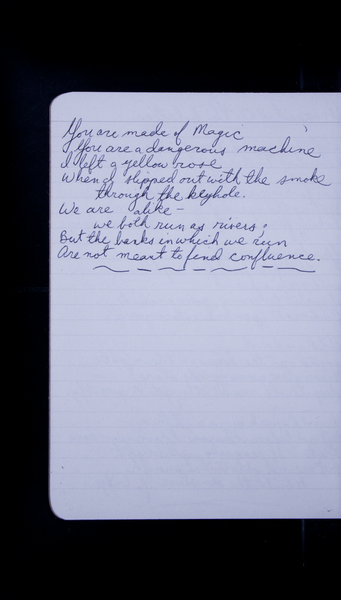 You are made of Magic
You are a dangerous machine
I left a yellow rose
When I slipped out with the smoke
through the keyhole.
We are alike –
we both run as rivers;
But the banks in which we run
Are not meant to find confluence.